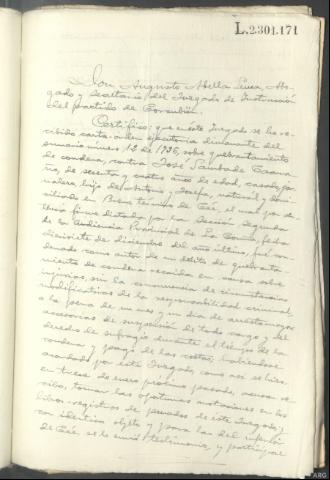 L.2301.171
Don Augusto Abella Abo-
gado y Secretario del Juzgado de Instrucción
del partido de Corcubión.
Certifico: que en este Juzgado se ha re-
cibido carta-orden ejecutoria dimanante del
sumario núm. 12 de 1936, sobre quebrantamiento
de condena, contra José
de sesenta y cuatro años de edad, casado, jor-
nalero, hijo de Antonio y Josefa, natural y domi-
ciliado en término de Cée, el cual por sen-
tencia firme dictada por la Sección segunda
de la Audiencia Provincial de La Coruña, fecha
diecisiete de diciembre del año último, fué con-
denado como autor de un delito de quebranta-
miento de condena recaída en causa sobre
injurias, sin la concurrencia de circunstancias
modificativas de la responsabilidad criminal,
a la pena de un mes y un día de arresto mayor,
accesorias de suspensión de todo cargo y del
derecho de sufragio durante el tiempo de la
condena y pago de las costas; habiéndose
acordado por este Juzgado, como así se hizo,
en trece de enero próximo pasado, acusar re-
cibo, tomar las oportunas anotaciones en los
libros-registros de penados de este Juzgado, y
con idéntico objeto y para las del inferior
de Cée, se le envió testimonio, y participar
ARG